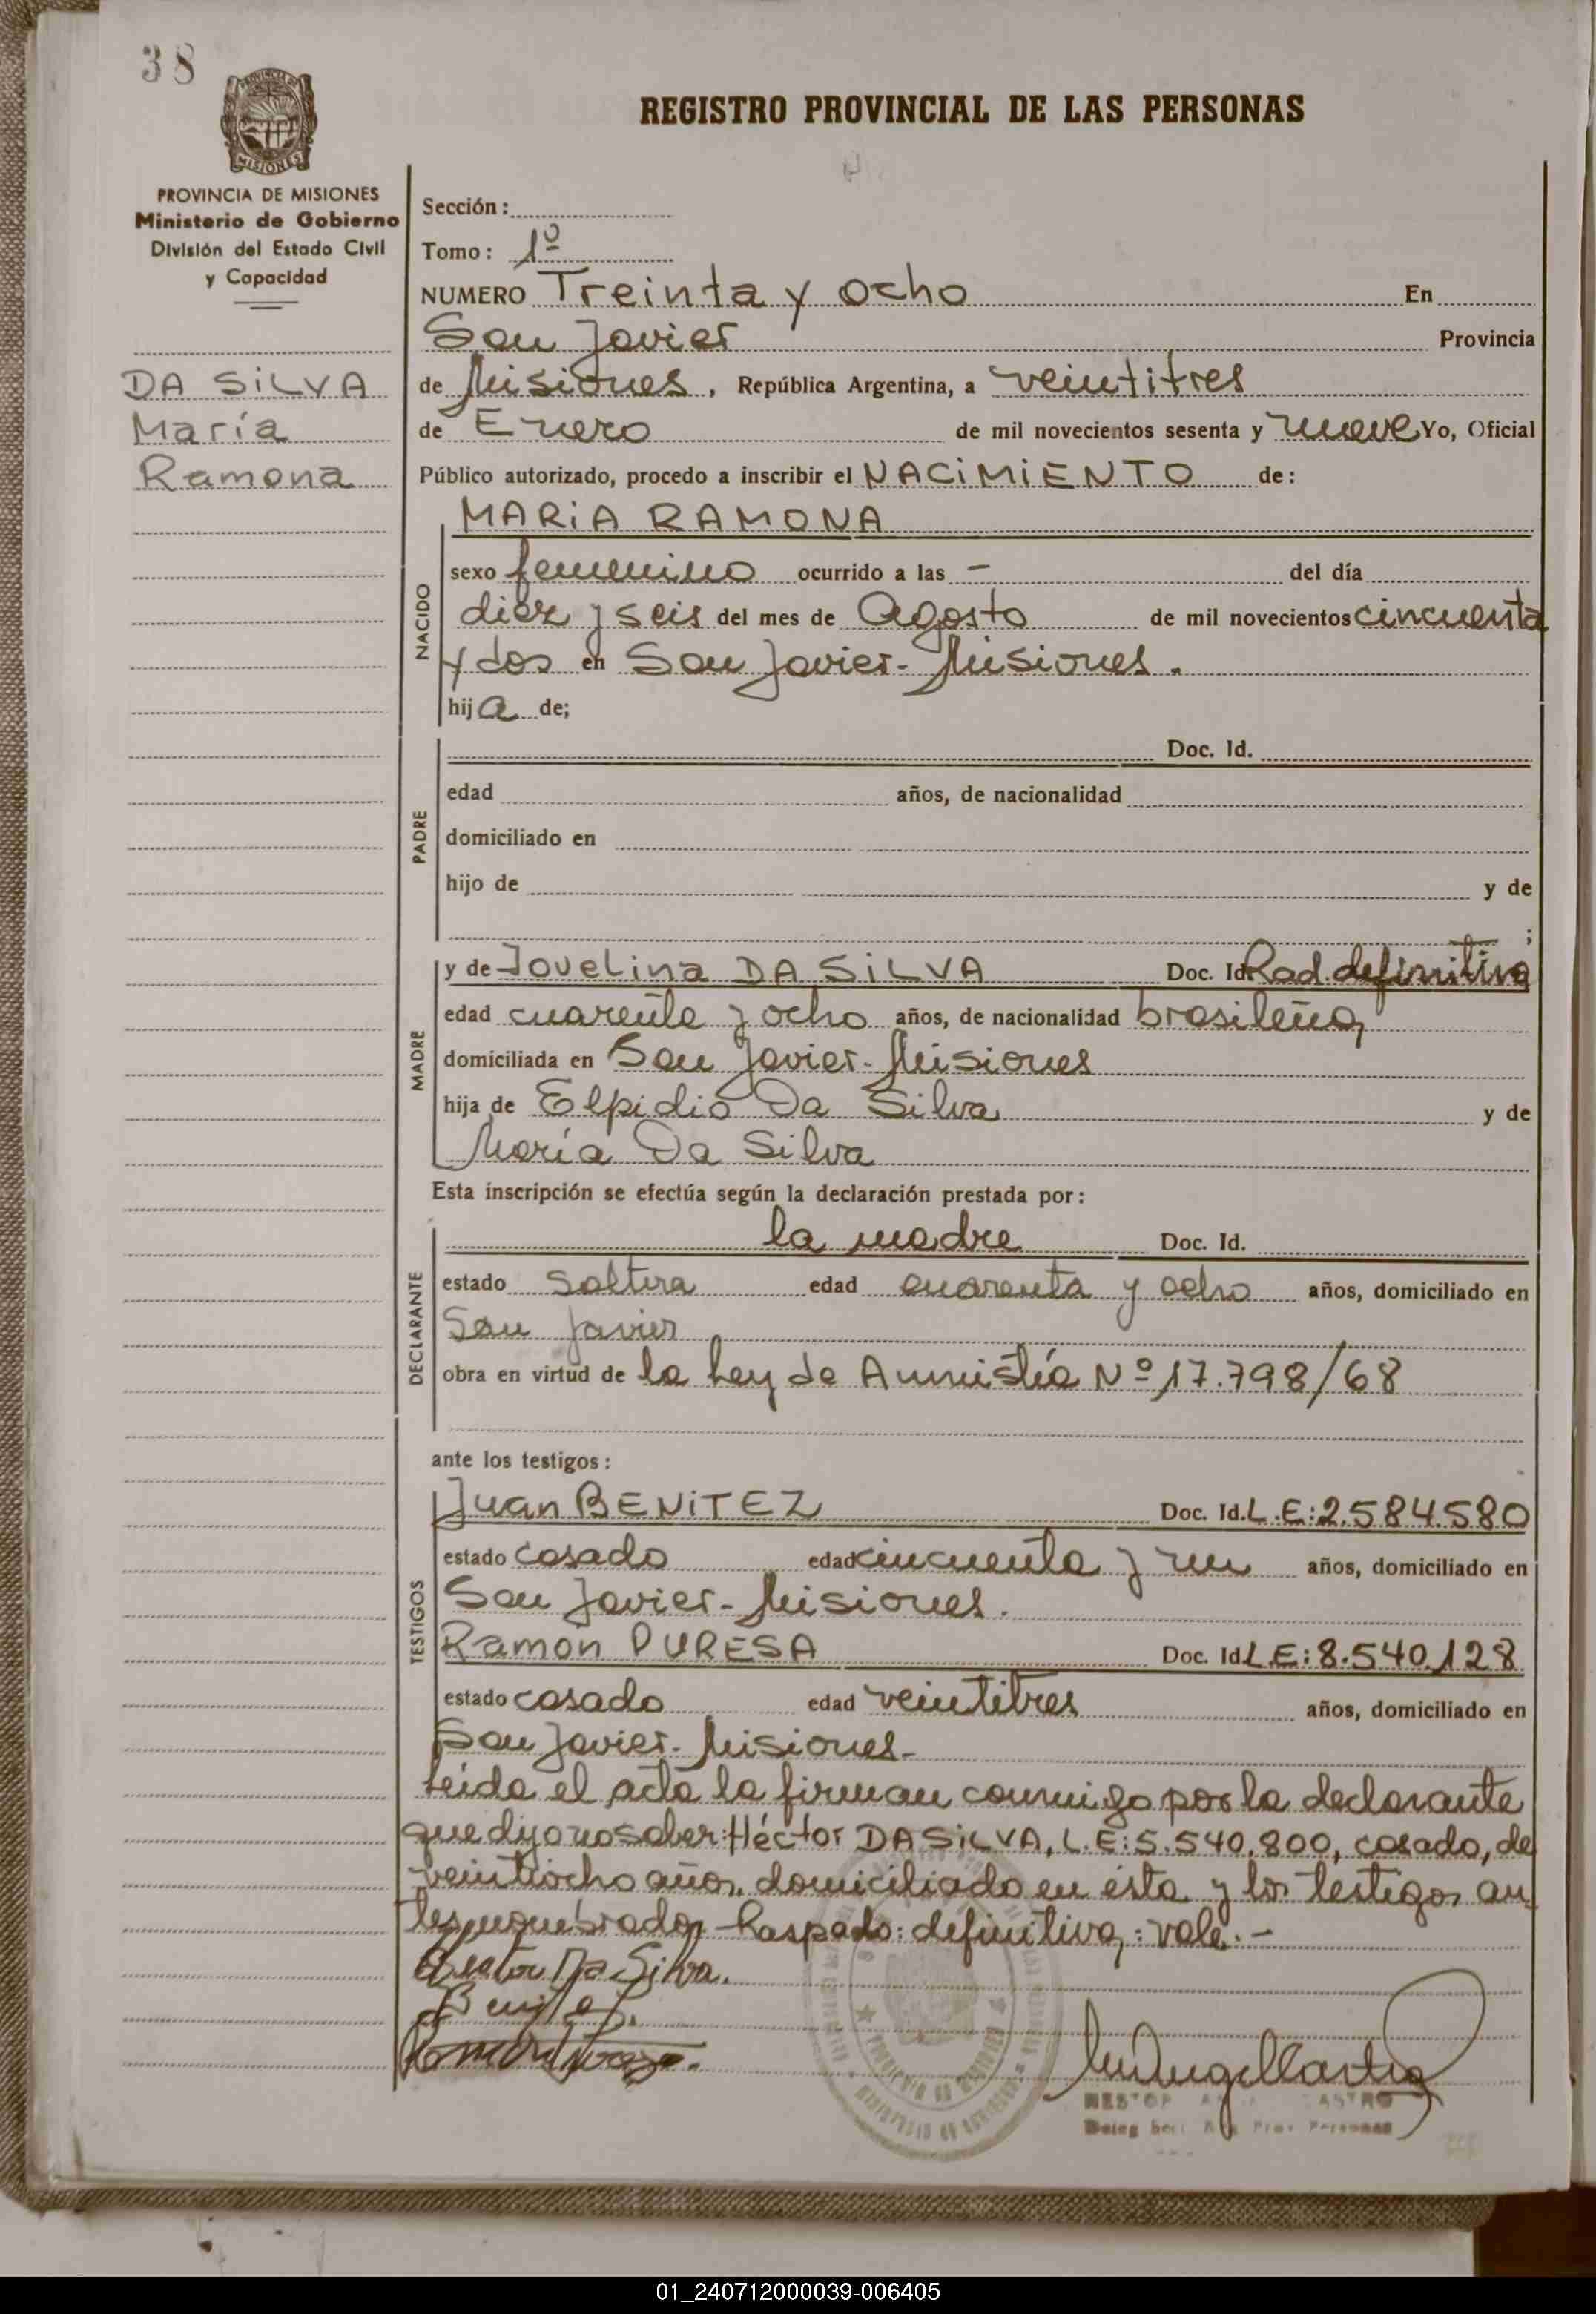 38
PROVINCIA DE MISIONES
Ministerio de Gobierno
División del Estado Civil
y Capacidad
DA SiLVA
María
Ramona
REGISTRO PROVINCIAL DE LAS PERSONAS
Sección:
Tomo: 1º
NUMERO Treinta y ocho En
San Javier Provincia
de Misiones, República Argentina, a veintitres
de Enero de mil novecientos sesenta y nueve Yo, Oficial
Público autorizado, procedo a inscribir el NACiMiENTO de:
MARiA RAMONA
NACIDO
sexo femenino ocurrido a las - del día
diez y seis del mes de Agosto de mil novecientos cincuenta
y dos en San Javier- Misiones.
hija de;
PADRE
Doc. Id.
edad años, de nacionalidad
domiciliado en
hijo de y de
;
MADRE
y de Jovelina DA SiLVA Doc. Id. Rad. definitiva
edad cuarenta y ocho años, de nacionalidad brasileña,
domiciliada en San Javier- Misiones
hija de Elpidio Da Silva y de
María Da Silva
Esta inscripción se efectúa según la declaración prestada por:
DECLARANTE
la madre Doc. Id.
estado soltera edad cuarenta y ocho años, domiciliado en
San Javier
obra en virtud de la Ley de Amnistía Nº 17.798/68
ante los testigos:
TESTIGOS
Juan BENiTEZ Doc. Id. L.E:2.584.580
estado casado edad cincuenta y un años, domiciliado en
San Javier- Misiones.
Ramón DURESA Doc. Id. L.E:8.540.128
estado casado edad veintitres años, domiciliado en
San Javier- Misiones-
Leída el acta la firman conmigo por la declarante
que dijo no saber: Héctor DA SiLVA, L.E:5.540.800, casado, de
veintiocho años, domiciliado en ésta y los testigos an-
tes nombrados- Raspado: definitiva,: vale.-
Hector Da Silva.
Benitez.
NESTOR CASTRO
Deleg. Prov. Personas
PROVINCIA DE MISIONES
MINISTERIO DE GOBIERNO
01_240712000039-006405